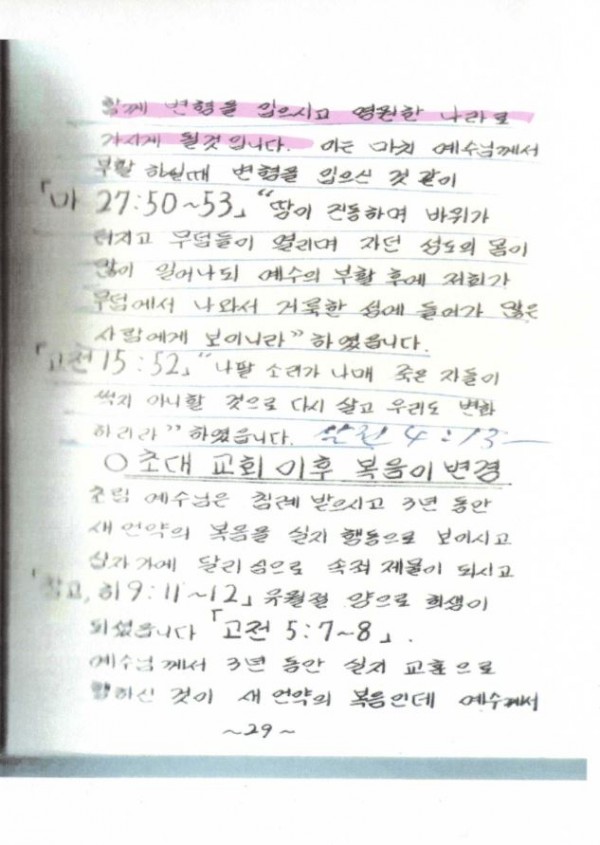 함께 변형을 입으시고 영원한 나라로
가시게 될것입니다. 이는 마치 예수님께서
부활 하실때 변형을 입으신 것 같이
「마 27:50~53」 “땅이 진동하며 바위가
터지고 무덤들이 열리며 자던 성도의 몸이
많이 일어나되 예수의 부활 후에 저희가
무덤에서 나와서 거룩한 성에 들어가 많은
사람에게 보이니라” 하였읍니다.
「고전 15:52」 “나팔 소리가 나매 죽은 자들이
썩지 아니할 것으로 다시 살고 우리도 변화
하리라” 하였읍니다. 살전 4:13―
○ 초대 교회 이후 복음이 변경
초림 예수님은 침례 받으시고 3년 동안
새 언약의 복음을 실지 행동으로 보이시고
십자가에 달리심으로 속죄 제물이 되시고
「참고, 히 9:11~12」 유월절 양으로 희생이
되셨읍니다 「고전 5:7~8」.
예수님께서 3년 동안 실지 교훈으로
행하신 것이 새 언약의 복음인데 예수께서
~29~